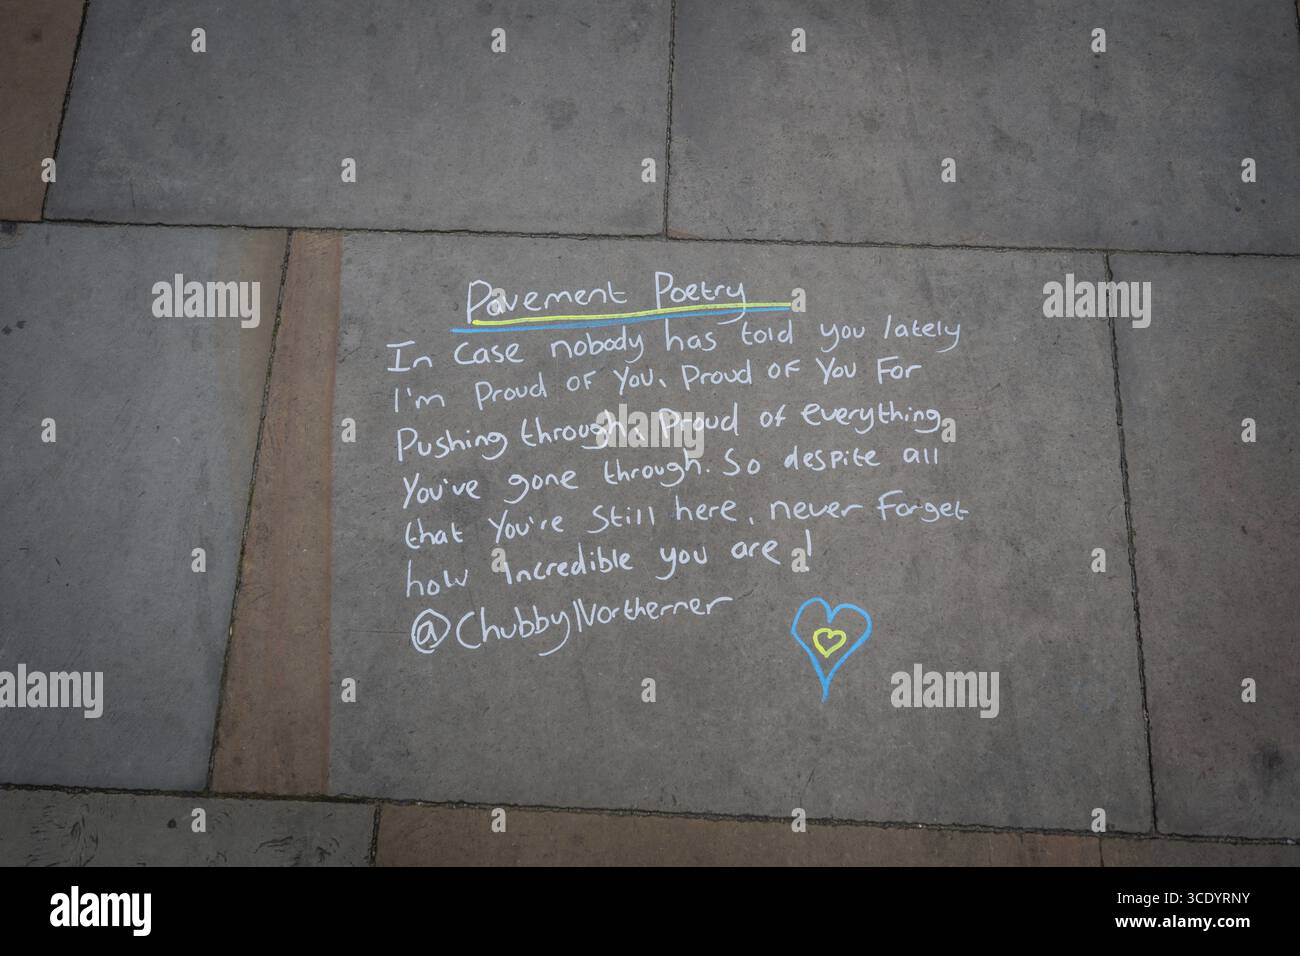 Pavement Poetry
In case nobody has told you lately
I'm Proud of You, Proud of You For
Pushing through, Proud of everything
You've gone through. So despite all
that You're Still here, never forget
how incredible you are!
@ChubbyNortherner
alamy
Image ID: 3CDYRNY
www.alamy.com